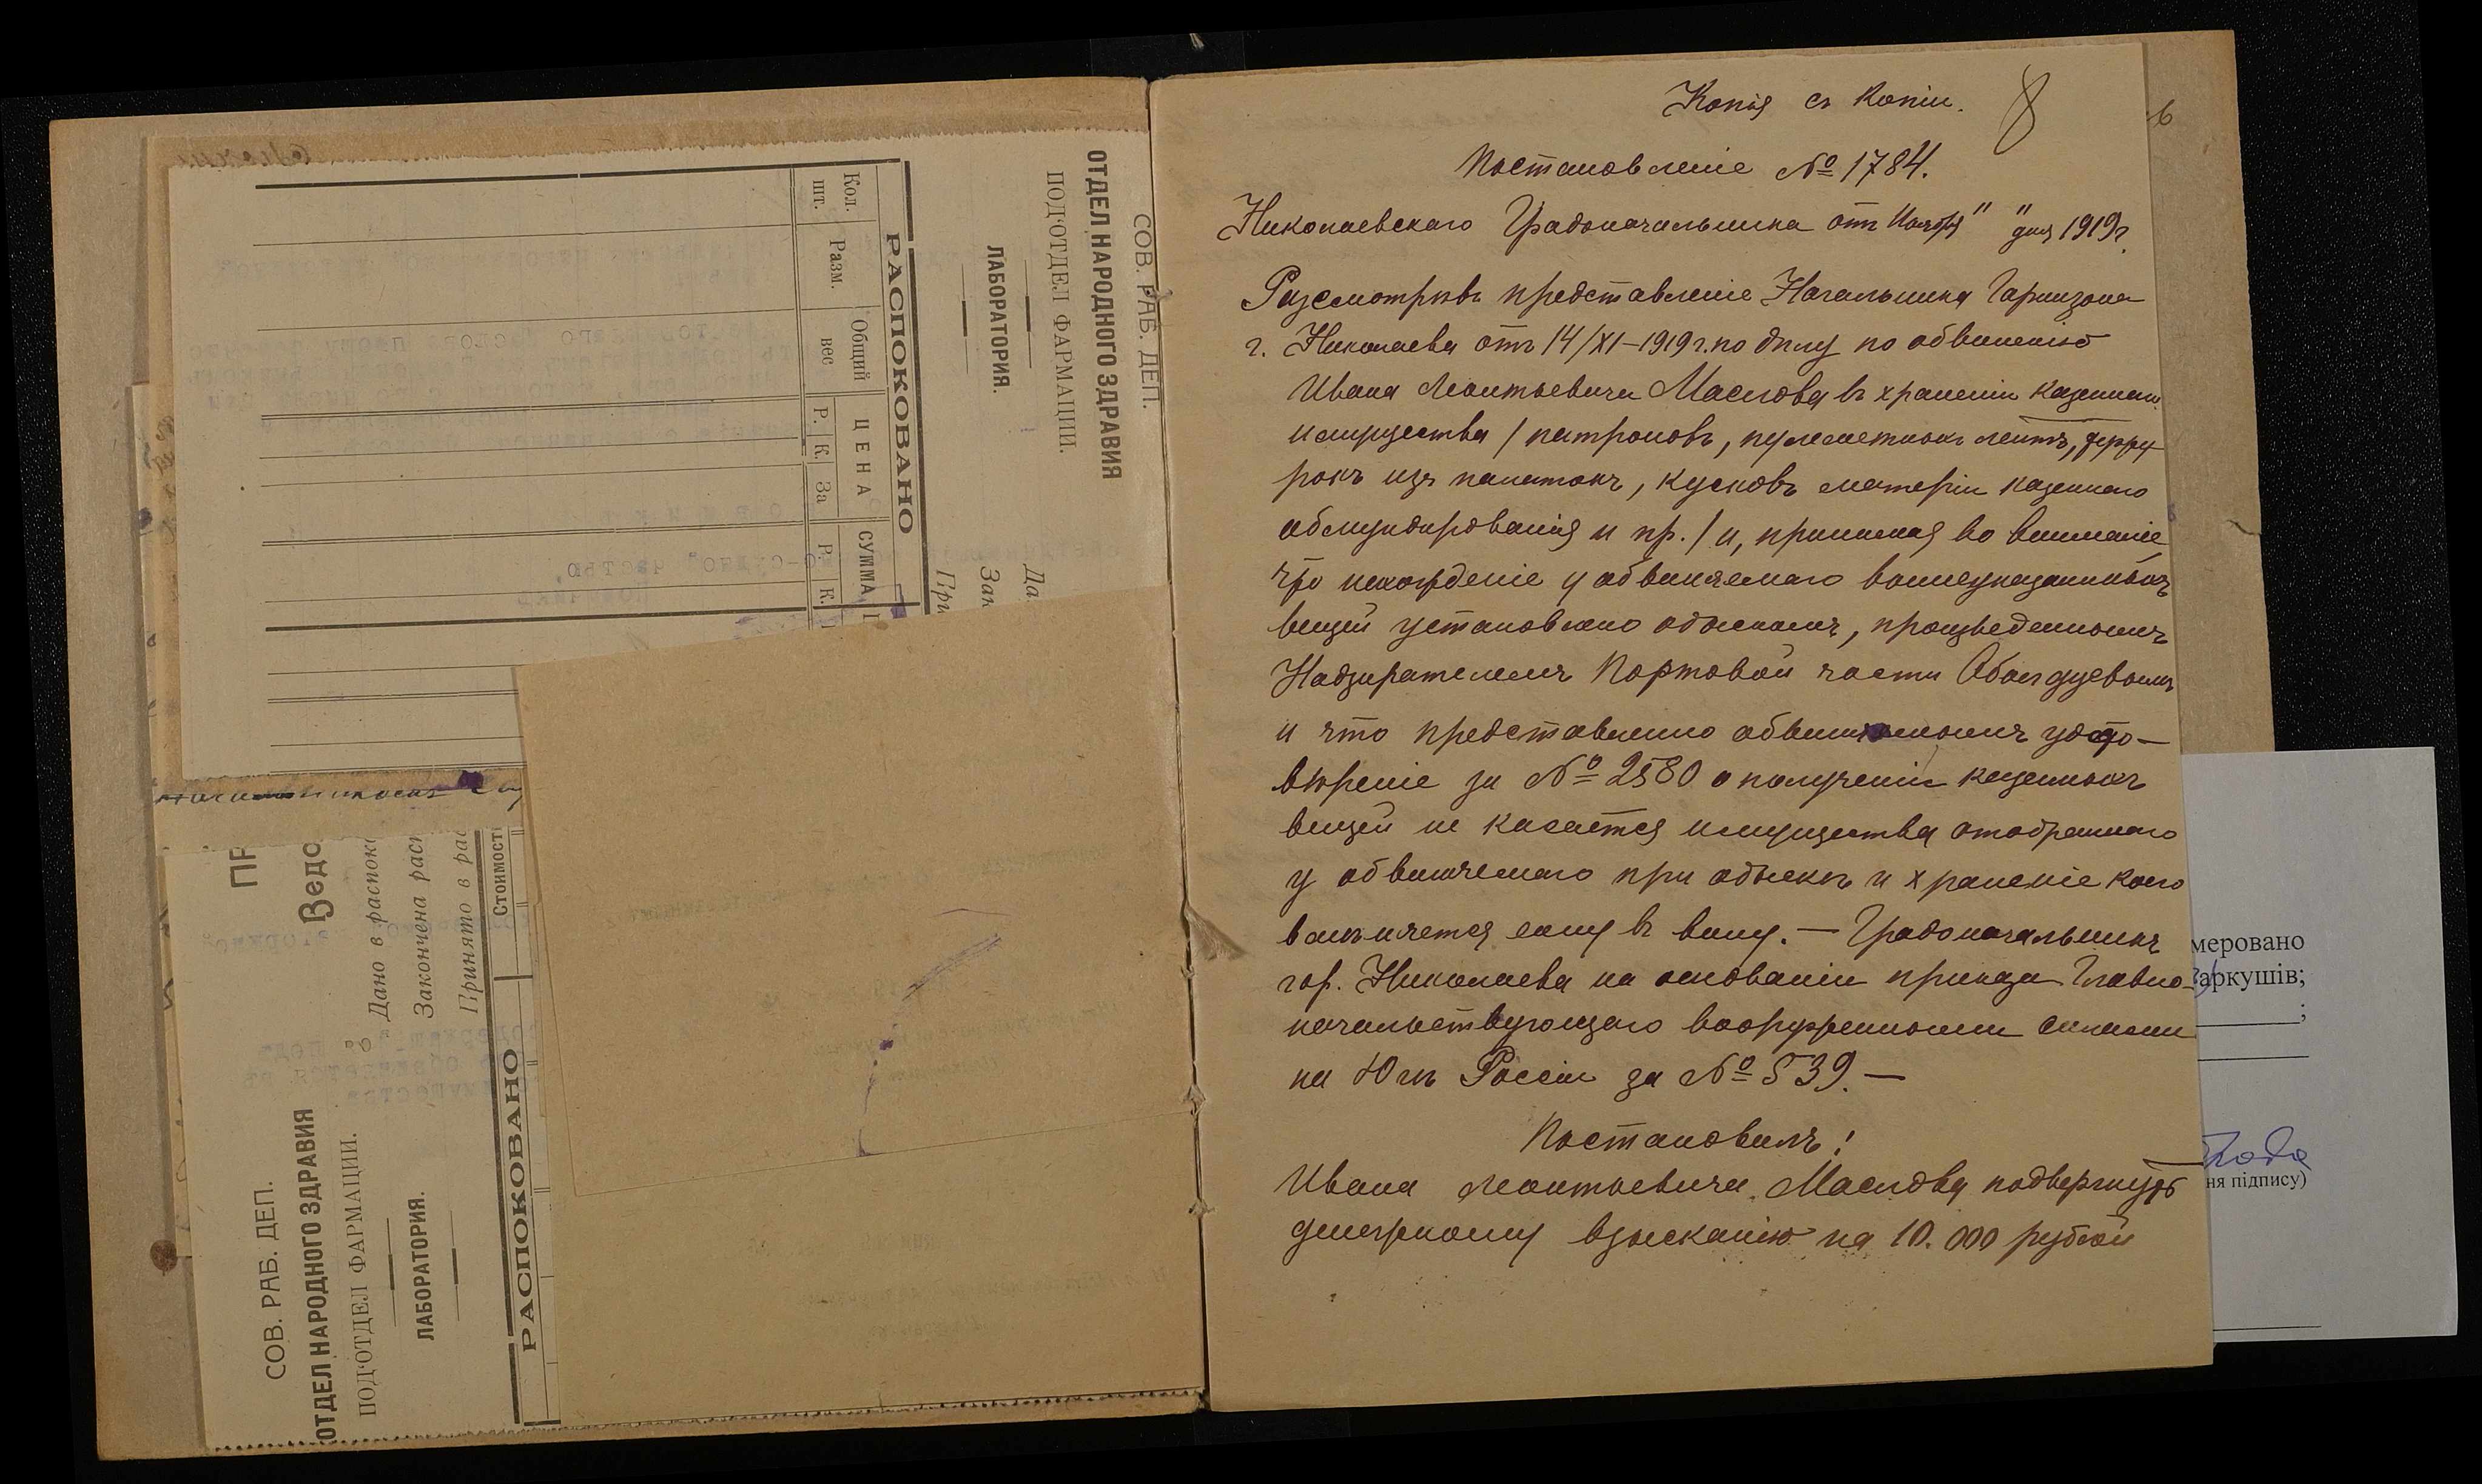 СОВ. РАБ. ДЕП.
ОТДЕЛ НАРОДНОГО ЗДРАВИЯ
ПОД'ОТДЕЛ ФАРМАЦИИ.
ЛАБОРАТОРИЯ.
РАСПОКОВАНО
Кол. шт.
Разм.
Общий вес
ЦЕНА
Р. К. За
СУММА
Р. К.
СОВ. РАБ. ДЕП.
ОТДЕЛ НАРОДНОГО ЗДРАВИЯ
ПОД'ОТДЕЛ ФАРМАЦИИ.
ЛАБОРАТОРИЯ.
Дано в распоко
Закончена расп
Принято в рас
РАСПОКОВАНО
Стоимость
Копія съ копіи.
8
6
Постановленіе № 1784.
Николаевскаго Градоначальника отъ Ноября " " дня 1919г.
Разсмотрѣвъ представленіе Начальника Гарнизона
г. Николаева отъ 14/XI-1919 г. по дѣлу по обвиненію
Ивана Леонтьевича Маслова въ храненіи казеннаго
имущества /патроновъ, пулеметныхъ лентъ,
изъ палатокъ, кусковъ матеріи казеннаго
обмундированія и пр./ и, принимая во вниманіе,
что нахожденіе у обвиняемаго вышеуказанныхъ
вещей установлено обыскомъ, произведеннымъ
Надзирателемъ Портовой части
и что представленно обвиняемымъ удосто-
вѣреніе за № 2580 о полученіи казенныхъ
вещей не касается имущества отобраннаго
у обвиняемаго при обыскѣ и храненіе коего
вмѣняется ему въ вину. — Градоначальникъ
гор. Николаева на основаніи приказа Главно-
начальствующаго вооруженными силами
на Югѣ Россіи за № 539. —
Постановилъ:
Ивана Леонтьевича Маслова подвергнуть
денежному взысканію на 10.000 рублей
меровано
аркушів;
;
ня підпису)